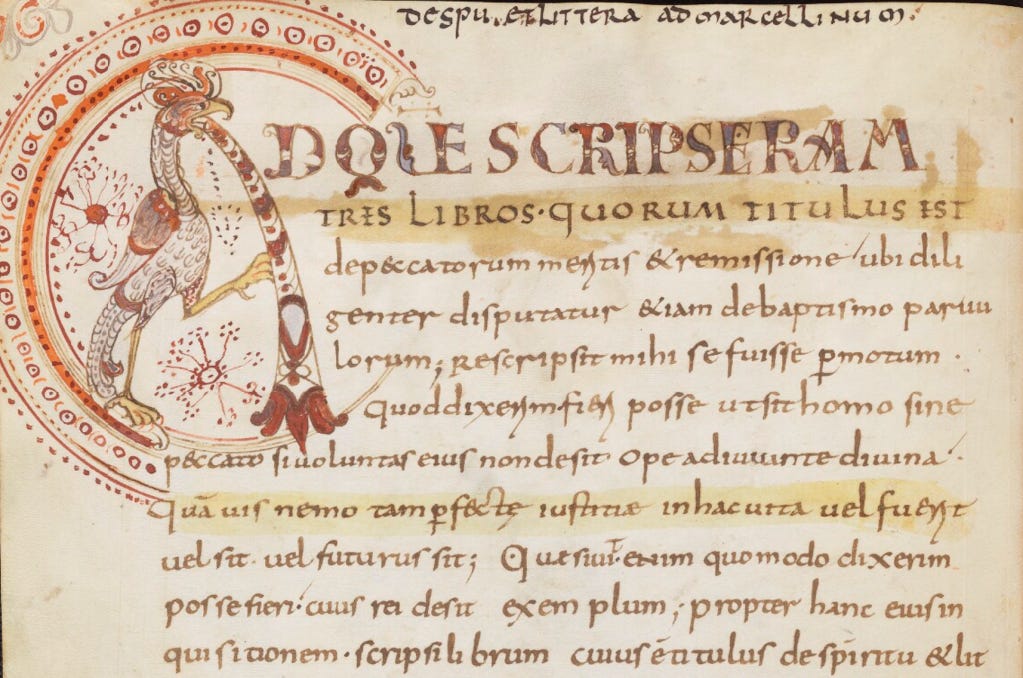 DESPU. ET LITTERA AD MARCELLINUM.
ADQUE SCRIPSERAM
TRES LIBROS· QUORUM TITULUS EST
depeccatorum meritis & remissione ubi dili
genter disputatur &iam debaptismo paruu
lorum; Rescripsit mihi se fuisse ꝑmotum ·
Quod dixerim fieri posse ut sit homo sine
peccato si uoluntas eius non desit Ope adiuuante diuina ·
Quāuis nemo tam ꝑfectę iustitiæ in hac uita uel fuerit
uel sit· uel futurus sit; Quæsiuit enim quomodo dixerim
posse fieri· cuius rei desit exemplum; propter hanc eius in
quisitionem· scripsi librum cuius ē titulus de spiritu & lit